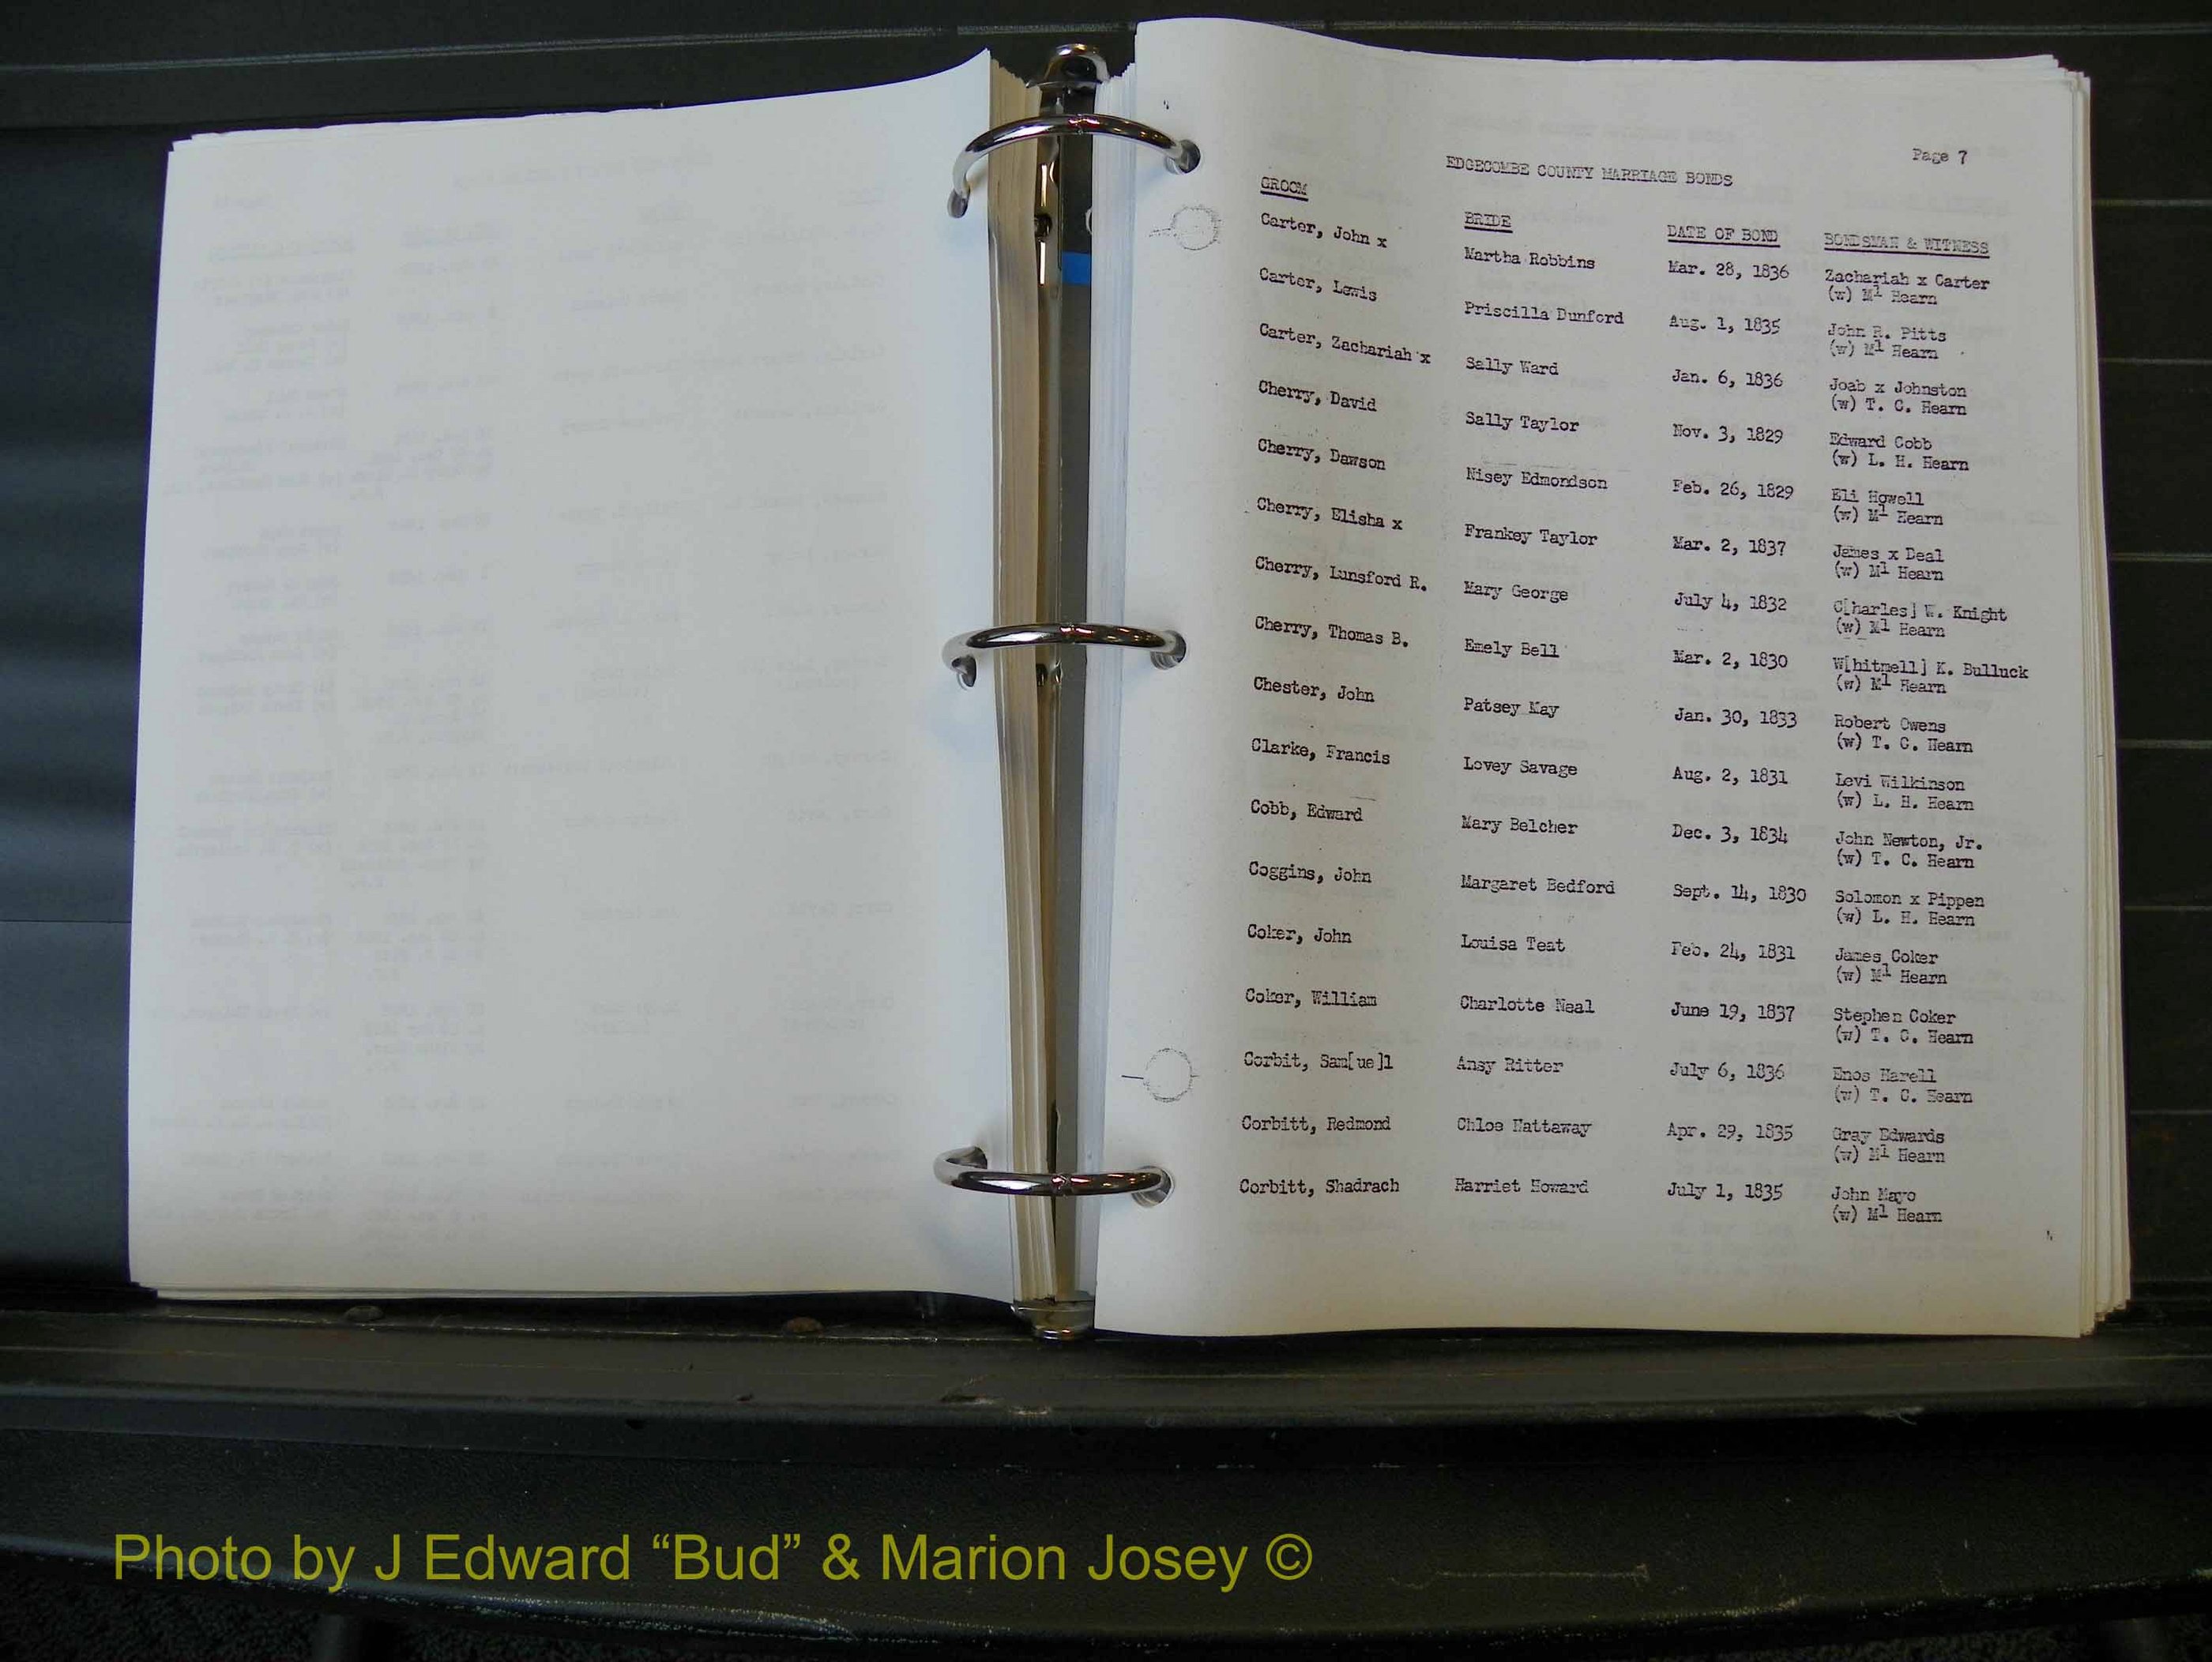 Page 7
EDGECOMBE COUNTY MARRIAGE BONDS
GROOM BRIDE DATE OF BOND BONDSMAN & WITNESS
Carter, John x Martha Robbins Mar. 28, 1836 Zachariah x Carter
(w) Ml Hearn
Carter, Lewis Priscilla Dunford Aug. 1, 1835 John R. Pitts
(w) Ml Hearn
Carter, Zachariah x Sally Ward Jan. 6, 1836 Joab x Johnston
(w) T. C. Hearn
Cherry, David Sally Taylor Nov. 3, 1829 Edward Cobb
(w) L. H. Hearn
Cherry, Dawson Nisey Edmondson Feb. 26, 1829 Eli Howell
(w) Ml Hearn
Cherry, Elisha x Frankey Taylor Mar. 2, 1837 James x Deal
(w) Ml Hearn
Cherry, Lunsford R. Mary George July 4, 1832 C[harles] W. Knight
(w) Ml Hearn
Cherry, Thomas B. Emely Bell Mar. 2, 1830 W[hitmell] K. Bulluck
(w) Ml Hearn
Chester, John Patsey May Jan. 30, 1833 Robert Owens
(w) T. C. Hearn
Clarke, Francis Lovey Savage Aug. 2, 1831 Levi Wilkinson
(w) L. H. Hearn
Cobb, Edward Mary Belcher Dec. 3, 1834 John Newton, Jr.
(w) T. C. Hearn
Coggins, John Margaret Bedford Sept. 14, 1830 Solomon x Pippen
(w) L. H. Hearn
Coker, John Louisa Teat Feb. 24, 1831 James Coker
(w) Ml Hearn
Coker, William Charlotte Neal June 19, 1837 Stephen Coker
(w) T. C. Hearn
Corbit, Sam[ue]l Ansy Ritter July 6, 1836 Enos Harell
(w) T. C. Hearn
Corbitt, Redmond Chloe Hattaway Apr. 29, 1835 Gray Edwards
(w) Ml Hearn
Corbitt, Shadrach Harriet Howard July 1, 1835 John Mayo
(w) Ml Hearn
Photo by J Edward “Bud” & Marion Josey ©